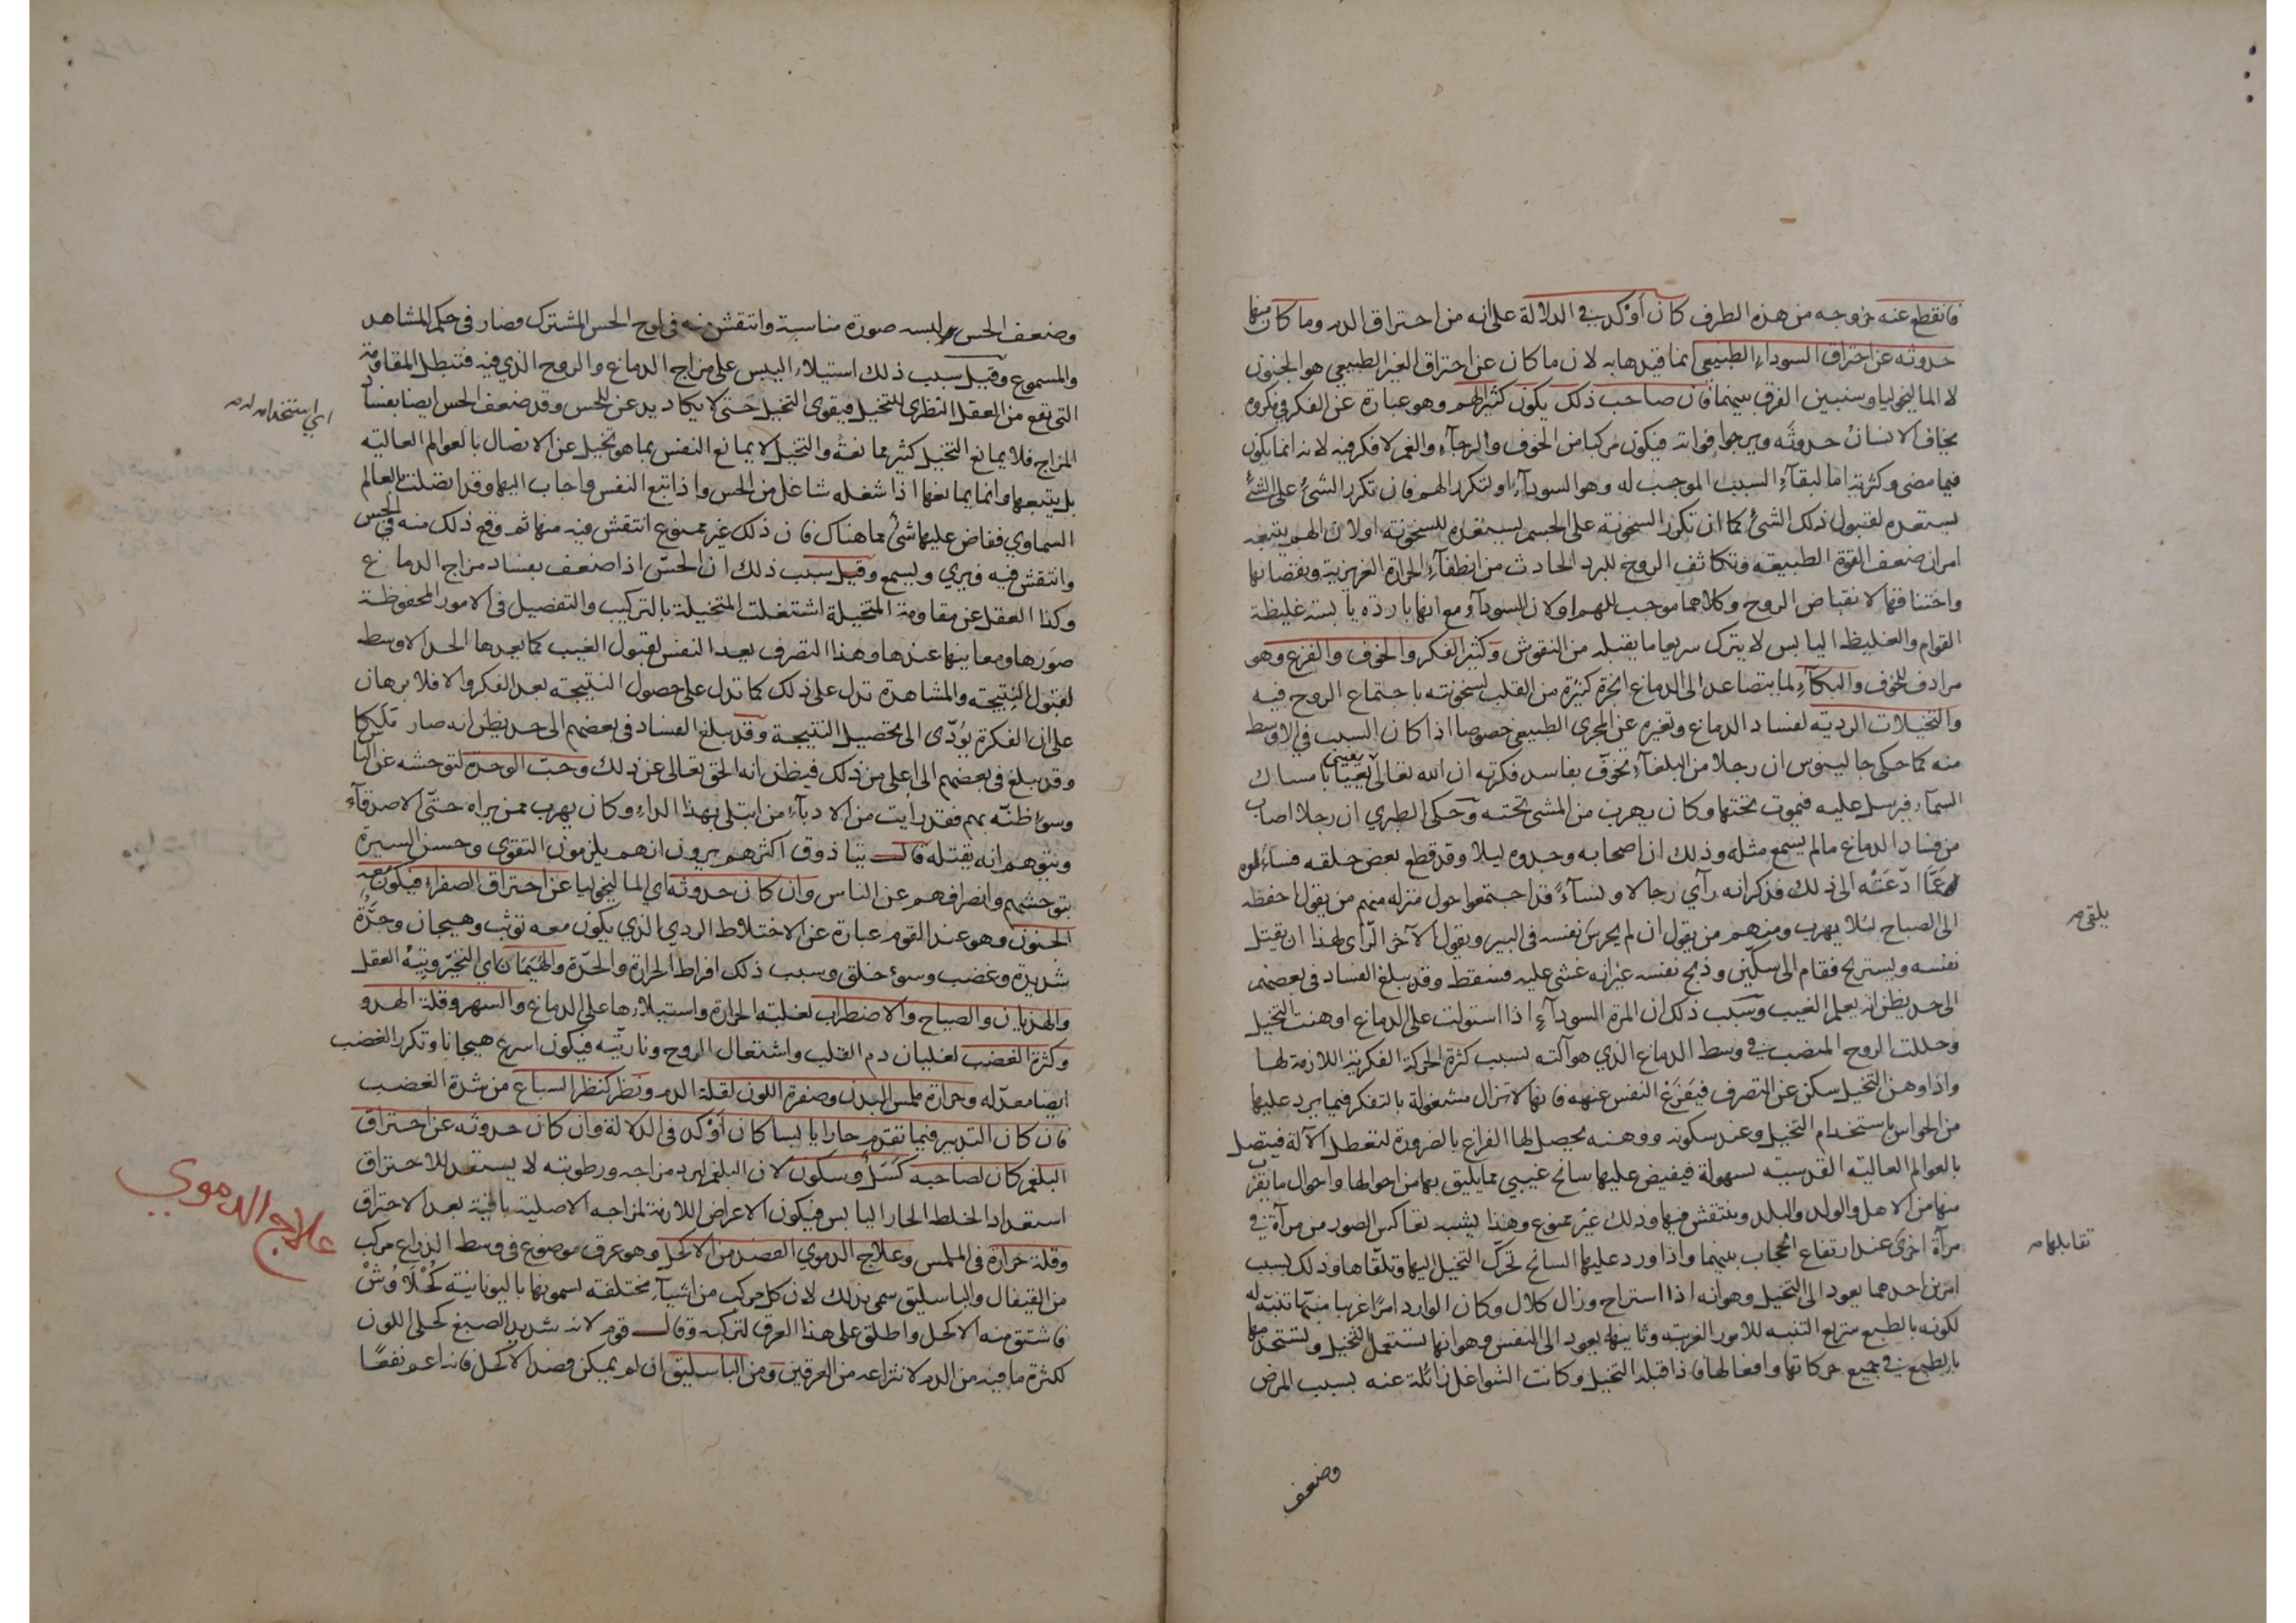 فانقطع عنه خروجه من هذه الطرف كان أوكد في الدلالة على انه من احتراق الدم وما كان منها
حدوثه عن احتراق السوداء الطبيعي انما قيدها به لان ما كان عن احتراق الغير الطبيعي هو الجنون
لا الماليخوليا وسنبين الفرق بينهما فان صاحب ذلك يكون كثير الهم وهو عبارة عن الفكر في مكروه
يخاف الانسان حدوثه ويرجوا فواته فيكون مركبا من الخوف والرجآء والغم لا فكر فيه لانه انما يكون
فيما مضى وكثرته اما لبقآء السبب الموجب له وهو السودآء او لتكرر الهم فان تكرر الشئ على الشئ
يستعده لقبول ذلك الشئ كما ان تكرر السخونة على الجسم يستعده للسخونة او لان الهم يتبعه
امران ضعف القوة الطبيعة وتكاثف الروح للبرد الحادث من انطفآء الحرارة الغريزية ونقصانها
واختناقها لانقباض الروح وكلاهما موجب للهم او لان السودآء مع انها باردة يابسة غليظة
القوام والغليظ اليابس لا يترك سريعا ما يقبله من النقوش وكثير الفكر والخوف والفزع وهو
مرادف للخوف والبكآء لما يتصاعد الى الدماغ ابخرة كثيرة من القلب لسخونته باجتماع الروح فيه
والتخيلات الردية لفساد الدماغ وتغيره عن المجرى الطبيعي خصوصا اذا كان السبب في الاوسط
منه كما حكى جالينوس ان رجلا من البلغآء تخوف بفاسد فكرته ان الله تعالى يعيى بامساك
السمآء فيرسل عليه فيموت تحتها وكان يهرب من المشى تحته وحكى الطبري ان رجلا اصاب
من فساد الدماغ ما لم يسمع مثله وذلك ان اصحابه وجدوه ليلا وقد قطع بعض حلقه فساءلوه
عما ادعته الى ذلك فذكر انه رآي رجالا ونسآء قد اجتمعوا حول منزله منهم من يقول احفظه
الى الصباح لئلا يهرب ومنهم من يقول ان لم يحرس نفسه في البير ويقول الآخر الرأى لهذا ان يقتل
نفسه ويستريح فقام الى سكين وذبح نفسه غير انه غشى عليه فسقط وقد يبلغ الفساد في بعضهم
الى حد يظن انه يعلم الغيب وسبب ذلك ان المرة السودآء اذا استولت على الدماغ اوهنت التخيل
وحللت الروح المنصب في وسط الدماغ الذي هو آلته بسبب كثرة الحركة الفكرية اللازمة لها
واذا وهن التخيل سكن عن التصرف فيفرغ النفس عنهه فانها لا تزال مشغولة بالتفكر فيما يرد عليها
من الحواس باستخدام التخيل وعند سكونه ووهنه يحصل لها الفراغ بالضرورة لتعطل الآلة فيتصل
بالعوالم العالية القدسية بسهولة فيفيض عليها سانح غيبي مما يليق بها من احوالها واحوال ما يقرب
منها من الاهل والولد والبلد وينتقش فيها وذلك غير ممنوع وهذا يشبه تعاكس الصور من مرآة في
مرآة اخرى عند ارتفاع الحجاب بينهما واذا ورد عليها السانح تحرك التخيل اليها وتلقاها وذلك بسبب
امرين احدهما يعود الى التخيل وهو انه اذا استراح وزال كلال وكان الوارد امرا غريبا منبها تنبه له
لكونه بالطبع سريع التنبه للامور الغريبة وثانيها يعود الى النفس وهو انها تستعمل التخيل وتستخدمها
بالطبع في جميع حركاتها وافعالها فاذا قبله التخيل وكانت الشواغل زائلة عنه بسبب المرض
وضعف
يلقى م
تقابلها م
وضعف الحس البسه صورة مناسبة وانتقش منه في لوح الحس المشترك وصار في حكم المشاهد
والمسموع وقيل سبب ذلك استيلاء اليبس على مزاج الدماغ والروح الذي فيه فتبطل المقاومة
التي تقع من العقل النظري للتخيل فيقوى التخيل حتى لا يكاد يدعن للحس وقد ضعف الحس ايضا بفساد
المزاج فلا يمانع التخيل كثير ممانعة والتخيل لا يمانع النفس بما هو تخيل عن الاتصال بالعوالم العالية
بل يتبعها وانما يمانعها اذا شغله شاغل من الحس واذا تبع النفس واجاب اليها وقد اتصلت بالعالم
السماوي ففاض عليها شئ مما هناك فان ذلك غير ممنوع انتقش فيه منها ثم وقع ذلك منه في الحس
وانتقش فيه فيري ويسمع وقيل سبب ذلك ان الحس اذا ضعف بفساد مزاج الدماغ
وكذا العقل عن مقاومة المتخيلة اشتغلت المتخيلة بالتركيب والتفصيل في الامور المحفوظة
صورها ومعانيها عندها وهذا التصرف يعد النفس لقبول الغيب كما يعدها الحد الاوسط
لقبول النتيجة والمشاهدة تدل على ذلك كما تدل على حصول النتيجة بعد الفكر والا فلا برهان
على ان الفكرة يؤدى الى تحصيل النتيجة وقد يبلغ الفساد في بعضهم الى حد يظن انه صار ملكا
وقد يبلغ في بعضهم الى اعلى من ذلك فيظن انه الحق تعالى عن ذلك وحب الوحدة لتوحشه عن الناس
وسوء ظنه بهم فقد رأيت من الادبآء من ابتلى بهذا الداء وكان يهرب ممن يراه حتى الاصدقآء
ويتوهم انه يقتله قال بتاذوق اكثرهم يرون انهم يلزمون التقوى وحسن السيرة
بتوحشهم وانصرافهم عن الناس وان كان حدوثه اي الماليخوليا عن احتراق الصفراء فيكون معه
الجنون وهو عند القوم عبارة عن الاختلاط الردي الذي يكون معه توثب وهيجان وحدة
شديدة وغضب وسوء خلق وسبب ذلك افراط الحرارة والحدة والهيمان اي التحير وتيه العقل
والهذيان والصياح والاضطراب لغلبة الحرارة واستيلائها على الدماغ والسهر وقلة الهدو
وكثرة الغضب لغليان دم القلب واشتعال الروح وناريته فيكون اسرع هيجانا وتكرر الغضب
ايضا معد له وحرارة ملمس البدن وصفرة اللون لقلة الدم ونظر كنظر السباع من شدة الغضب
فان كان التدبير فيما تقدم حارا يابسا كان أوكد في الدلالة وان كان حدوثه عن احتراق
البلغم كان لصاحبه كسل وسكون لان البلغم لبرد مزاجه ورطوبته لا يستعد للاحتراق
استعداد الخلط الحار اليابس فيكون الاعراض اللازمة لمزاجه الاصلية باقية بعد الاحتراق
وقلة حرارة في الملمس وعلاج الدموي الفصد من الاكحل وهو عرق موضوع في وسط الذراع مركب
من القيفال والباسليق سمى بذلك لان كل مركب من اشيآء مختلفة يسمونها باليونانية كحلاوش
فاشتق منه الاكحل واطلق على هذا العرق لتركبه وقال قوم لانه شديد الصبغ كحلي اللون
لكثرة ما فيه من الدم لانتزاعه من العرقين ومن الباسليق ان لم يمكن فصد الاكحل فانه اعم نفعا
اي استخدام له م
علاج الدموي